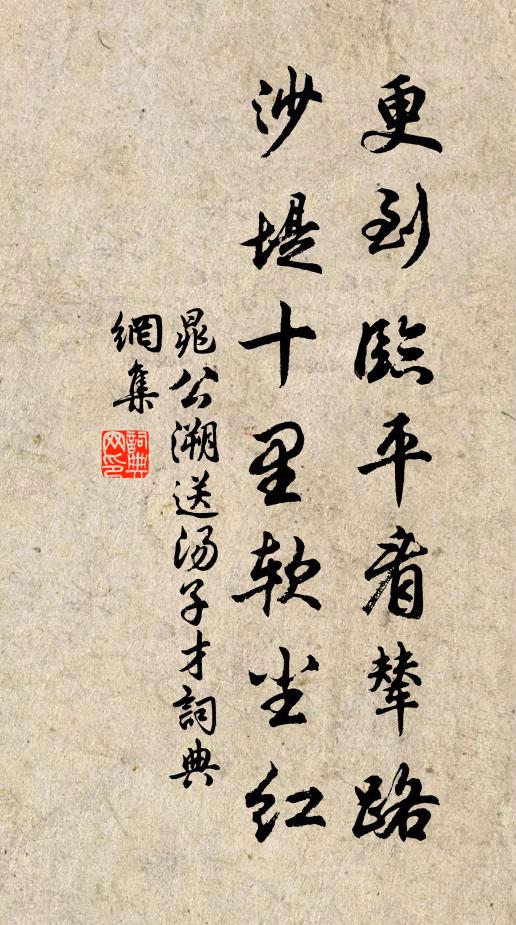 更到臨平看輦路
沙堤十里軟尘紅
晁公溯送汤子才詞典
網集
詞典
网印